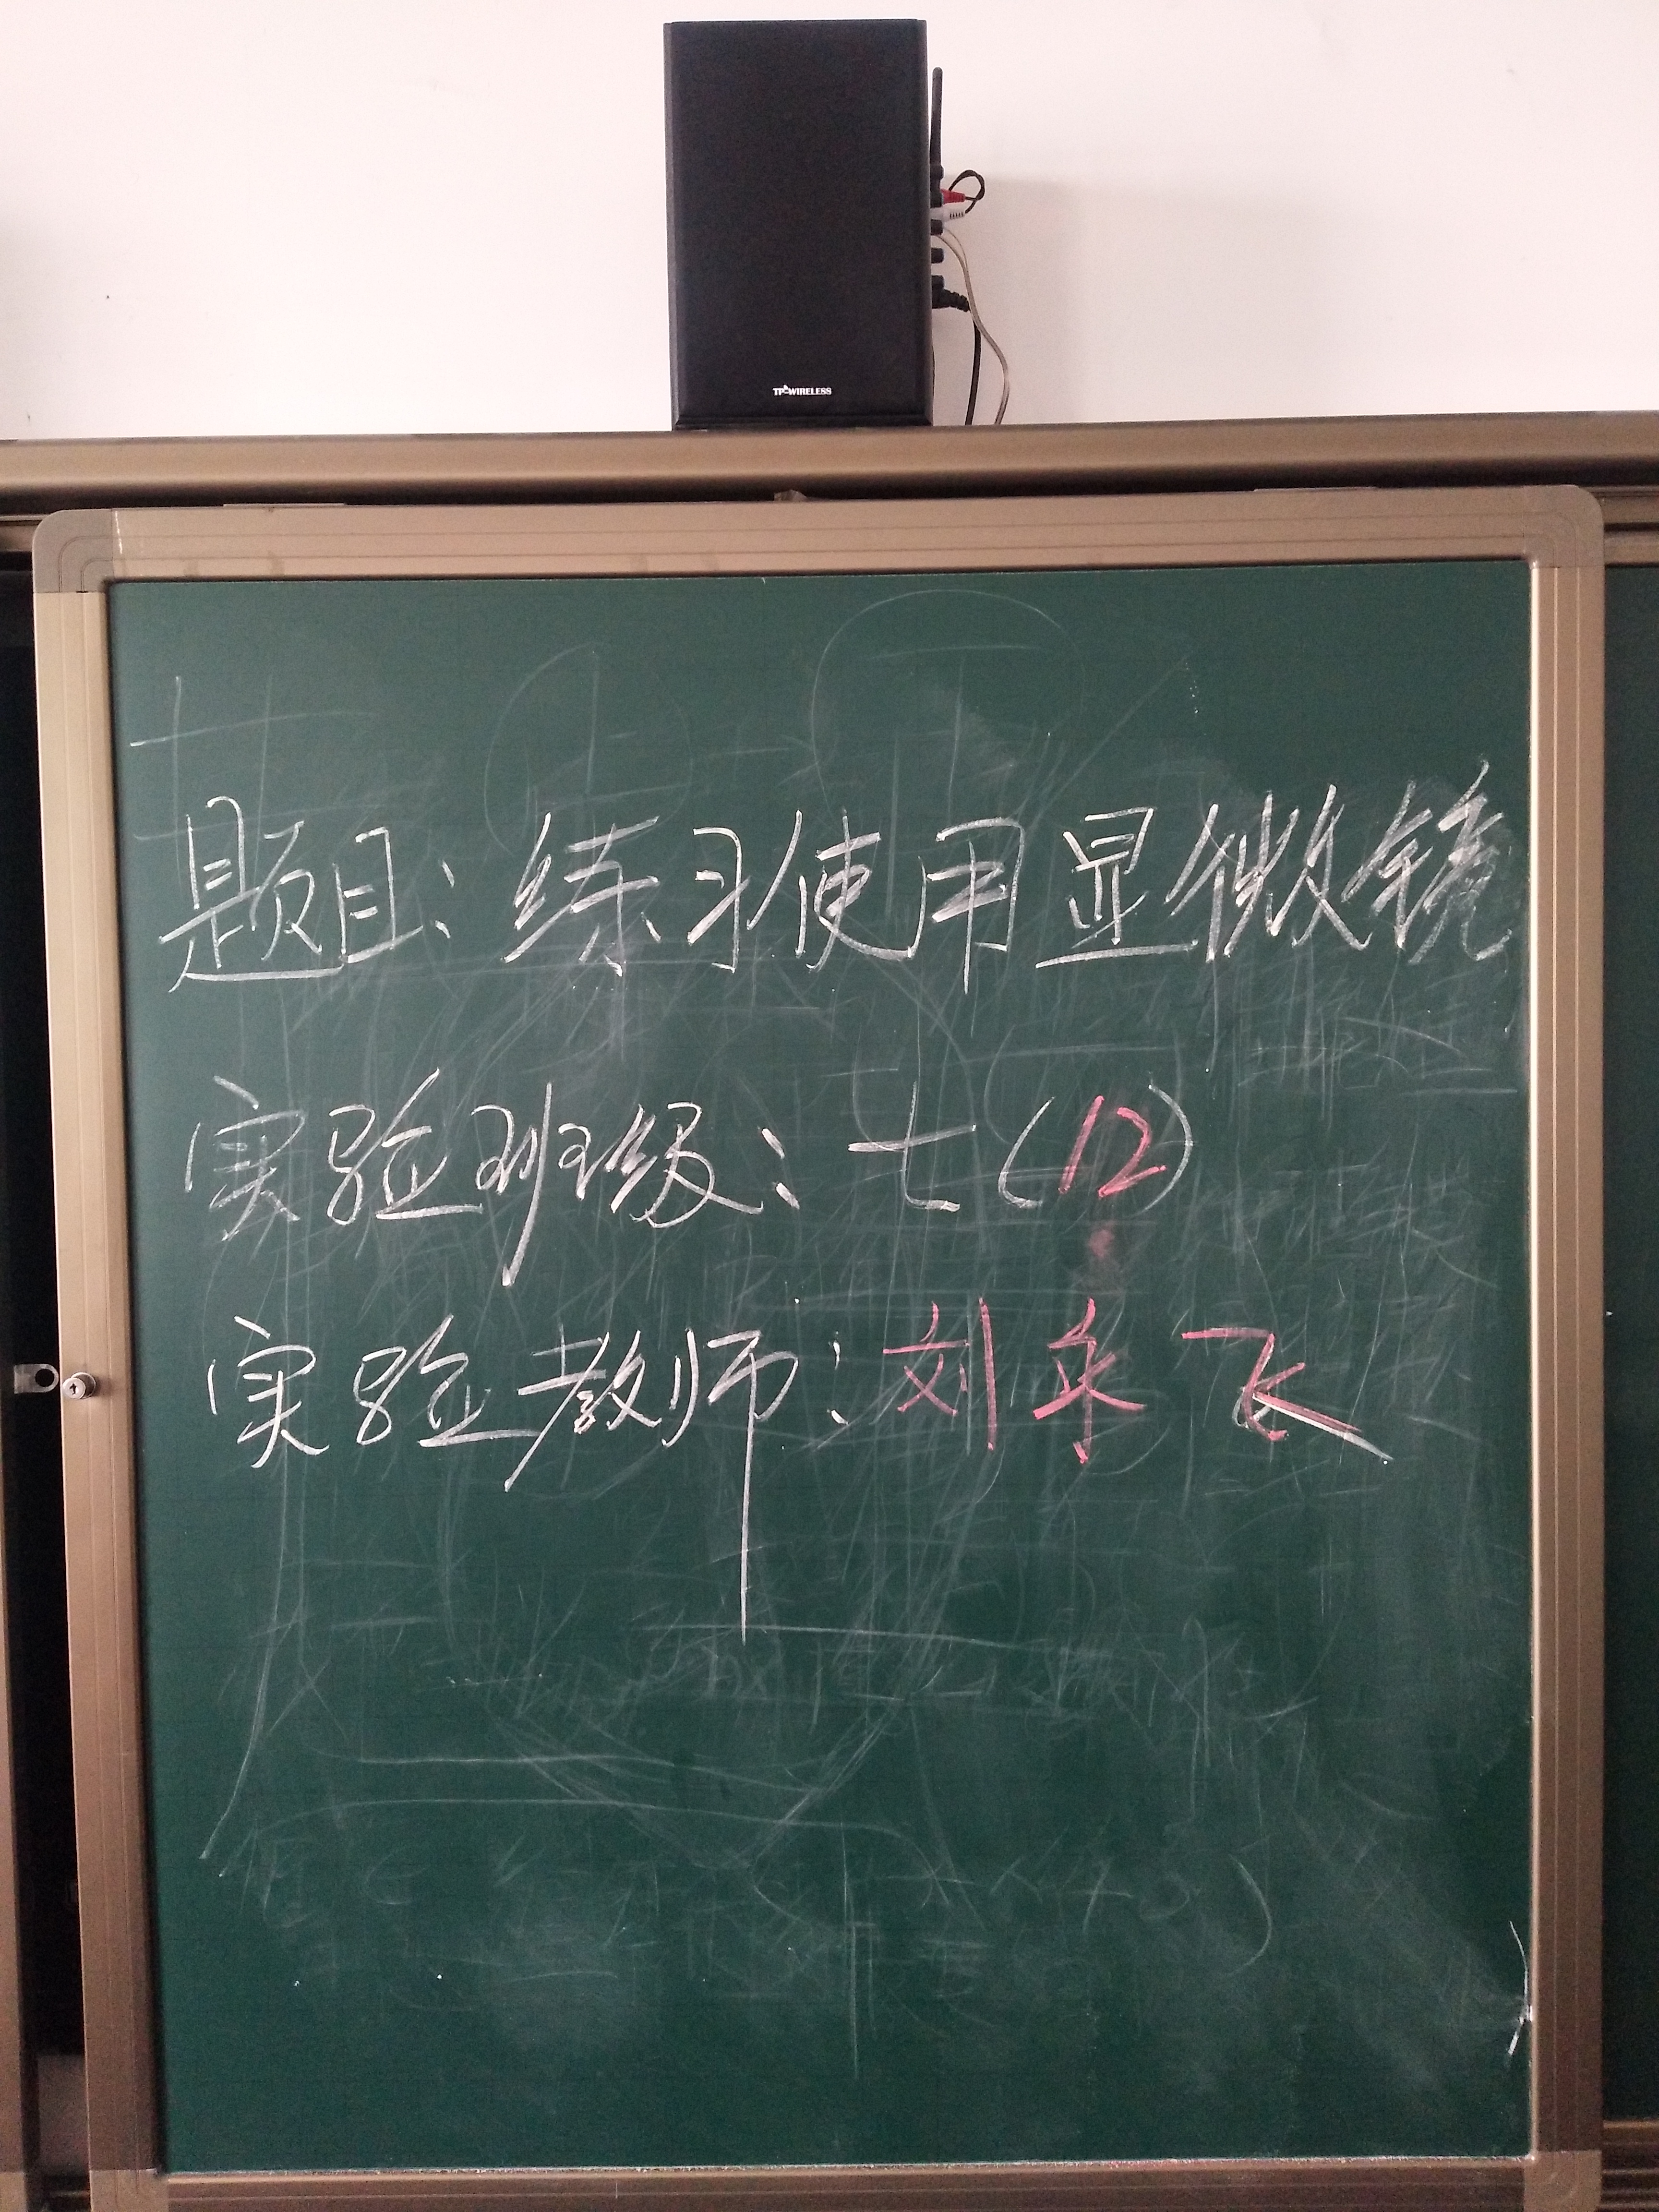 TP-WIRELESS
题目：练习使用显微镜
实验班级：七（12）
实验教师：刘乐飞